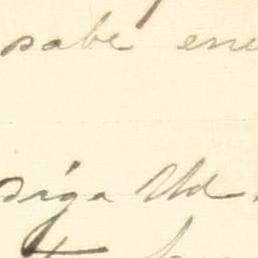 sabe ene
siga Ud